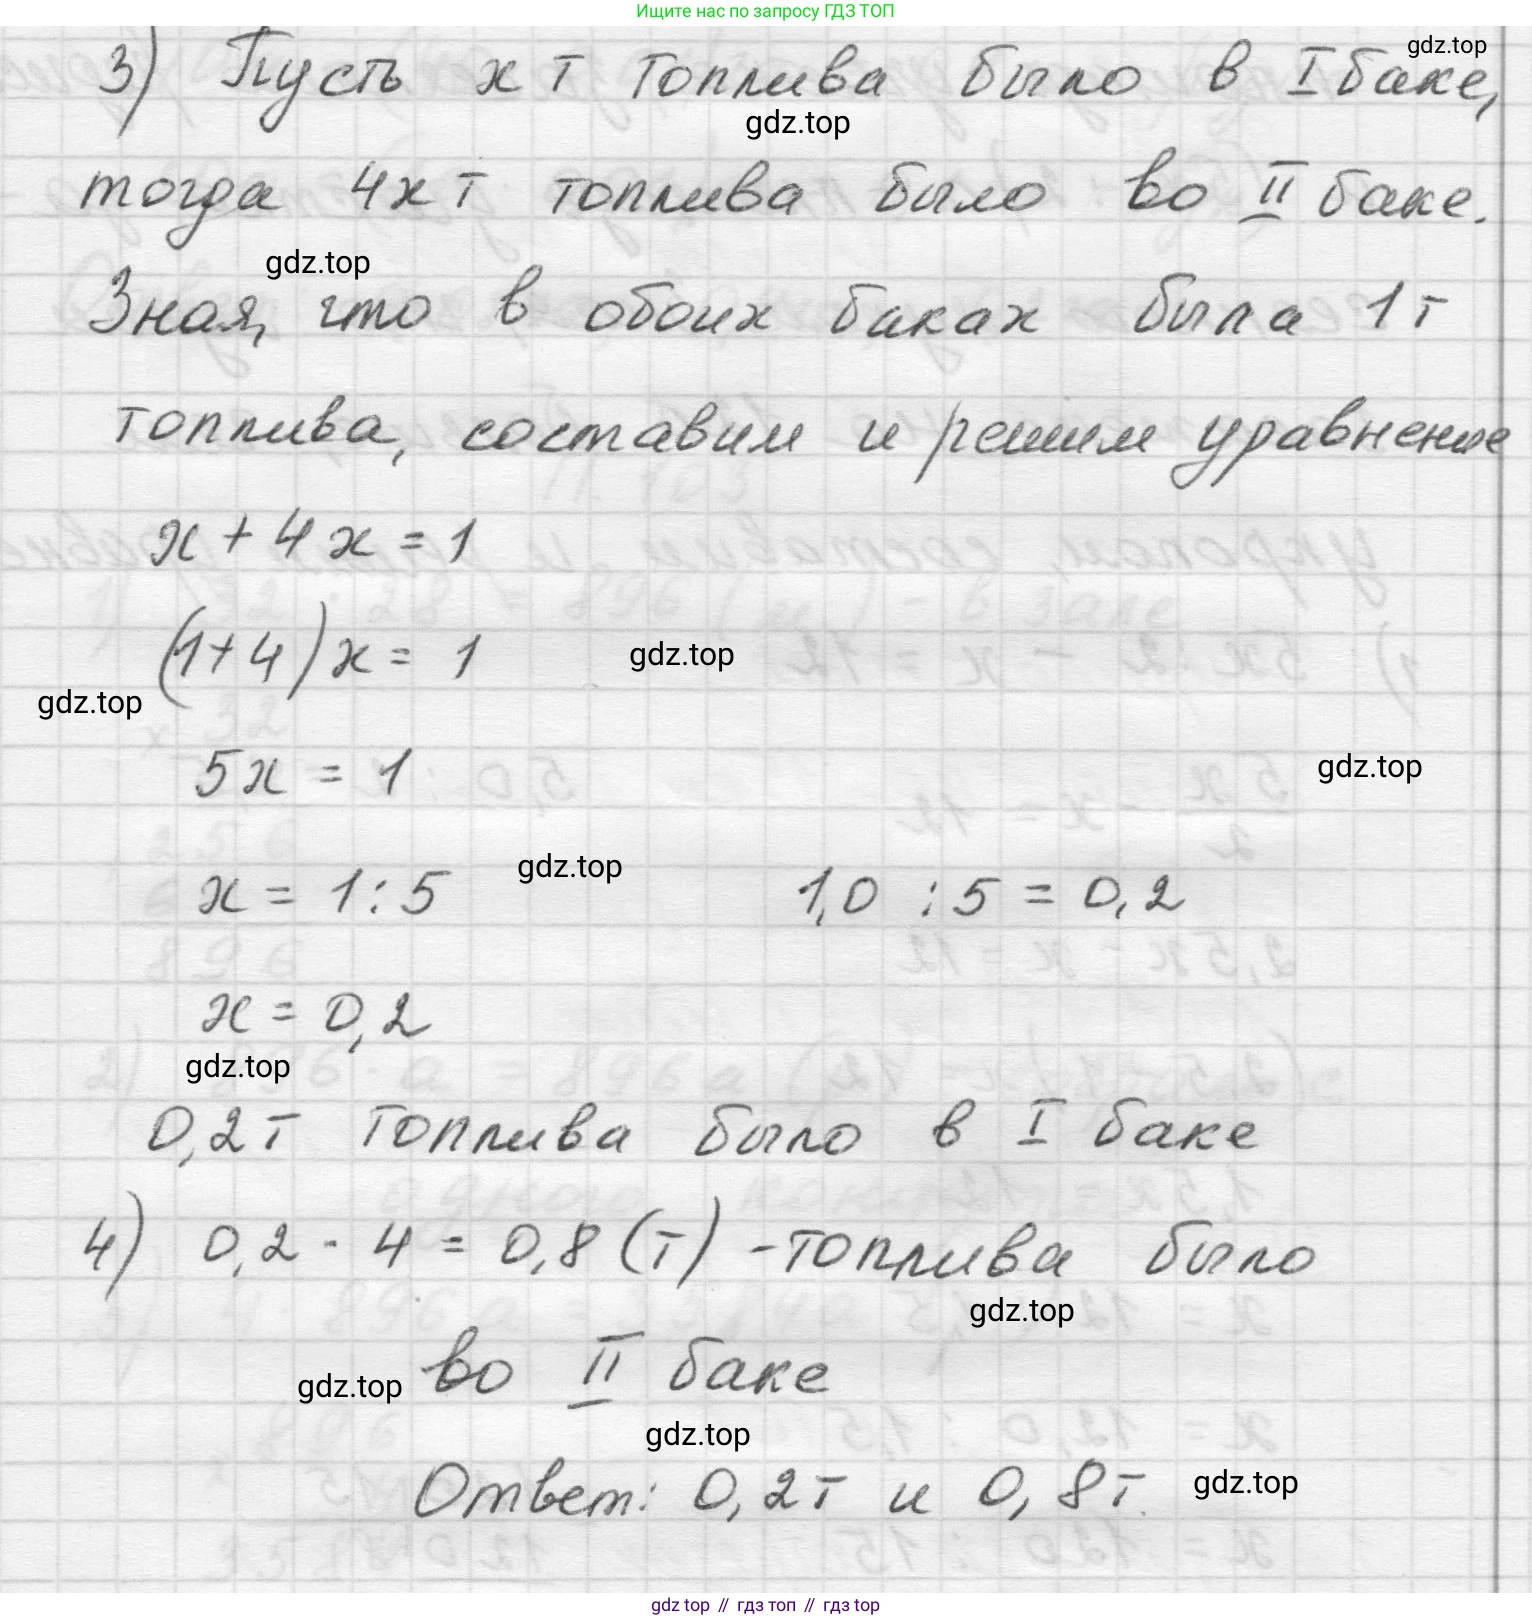 Ищите нас по запросу ГДЗ ТОП
gdz.top
3) Пусть x т топлива было в I баке,
gdz.top
тогда 4x т топлива было во II баке.
gdz.top
Зная, что в обоих баках была 1 т
топлива, составим и решим уравнение
x + 4x = 1
(1+4)x = 1
gdz.top
gdz.top
5x = 1
gdz.top
x = 1:5
gdz.top
1,0 : 5 = 0,2
x = 0,2
gdz.top
0,2 т топлива было в I баке
4) 0,2 · 4 = 0,8 (т) - топлива было
gdz.top
во II баке
gdz.top
gdz.top
Ответ: 0,2 т и 0,8 т.
gdz.top
gdz.top // гдз топ // гдз top